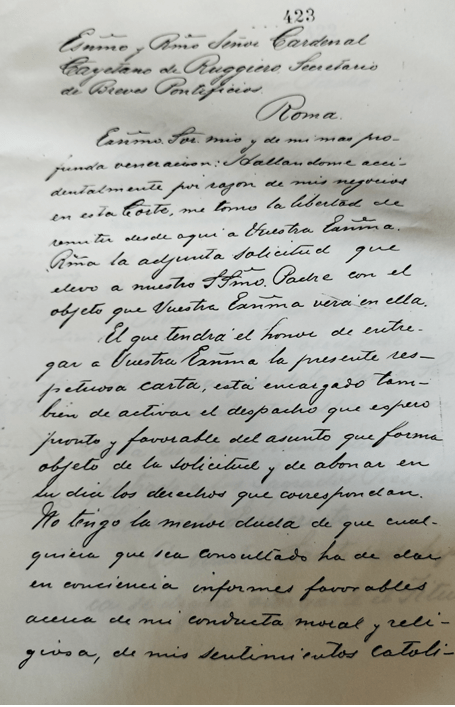 423
Exm̃o y Rm̃o Señor Cardenal
Cayetano de Ruggiero Secretario
de Breves Pontificios.
Roma.
Exm̃o. Sor. mio y de mi mas pro-
funda veneracion: Hallandome acci-
dentalmente por razon de mis negocios
en esta Corte, me tomo la libertad de
remitir desde aqui a Vuestra Exm̃a.
Rm̃a la adjunta solicitud que
elevo a nuestro SSm̃o. Padre con el
objeto que Vuestra Exm̃ma verá en ella.
El que tendrá el honor de entre-
gar a Vuestra Exm̃a la presente res-
petuosa carta, está encargado tam-
bien de activar el despacho que espero
pronto y favorable del asunto que forma
objeto de la solicitud y de abonar en
su dia los derechos que correspondan.
No tengo la menor duda de que cual-
quiera que sea consultado ha de dar
en conciencia informes favorables
acerca de mi conducta moral y reli-
giosa, de mis sentimientos catoli-